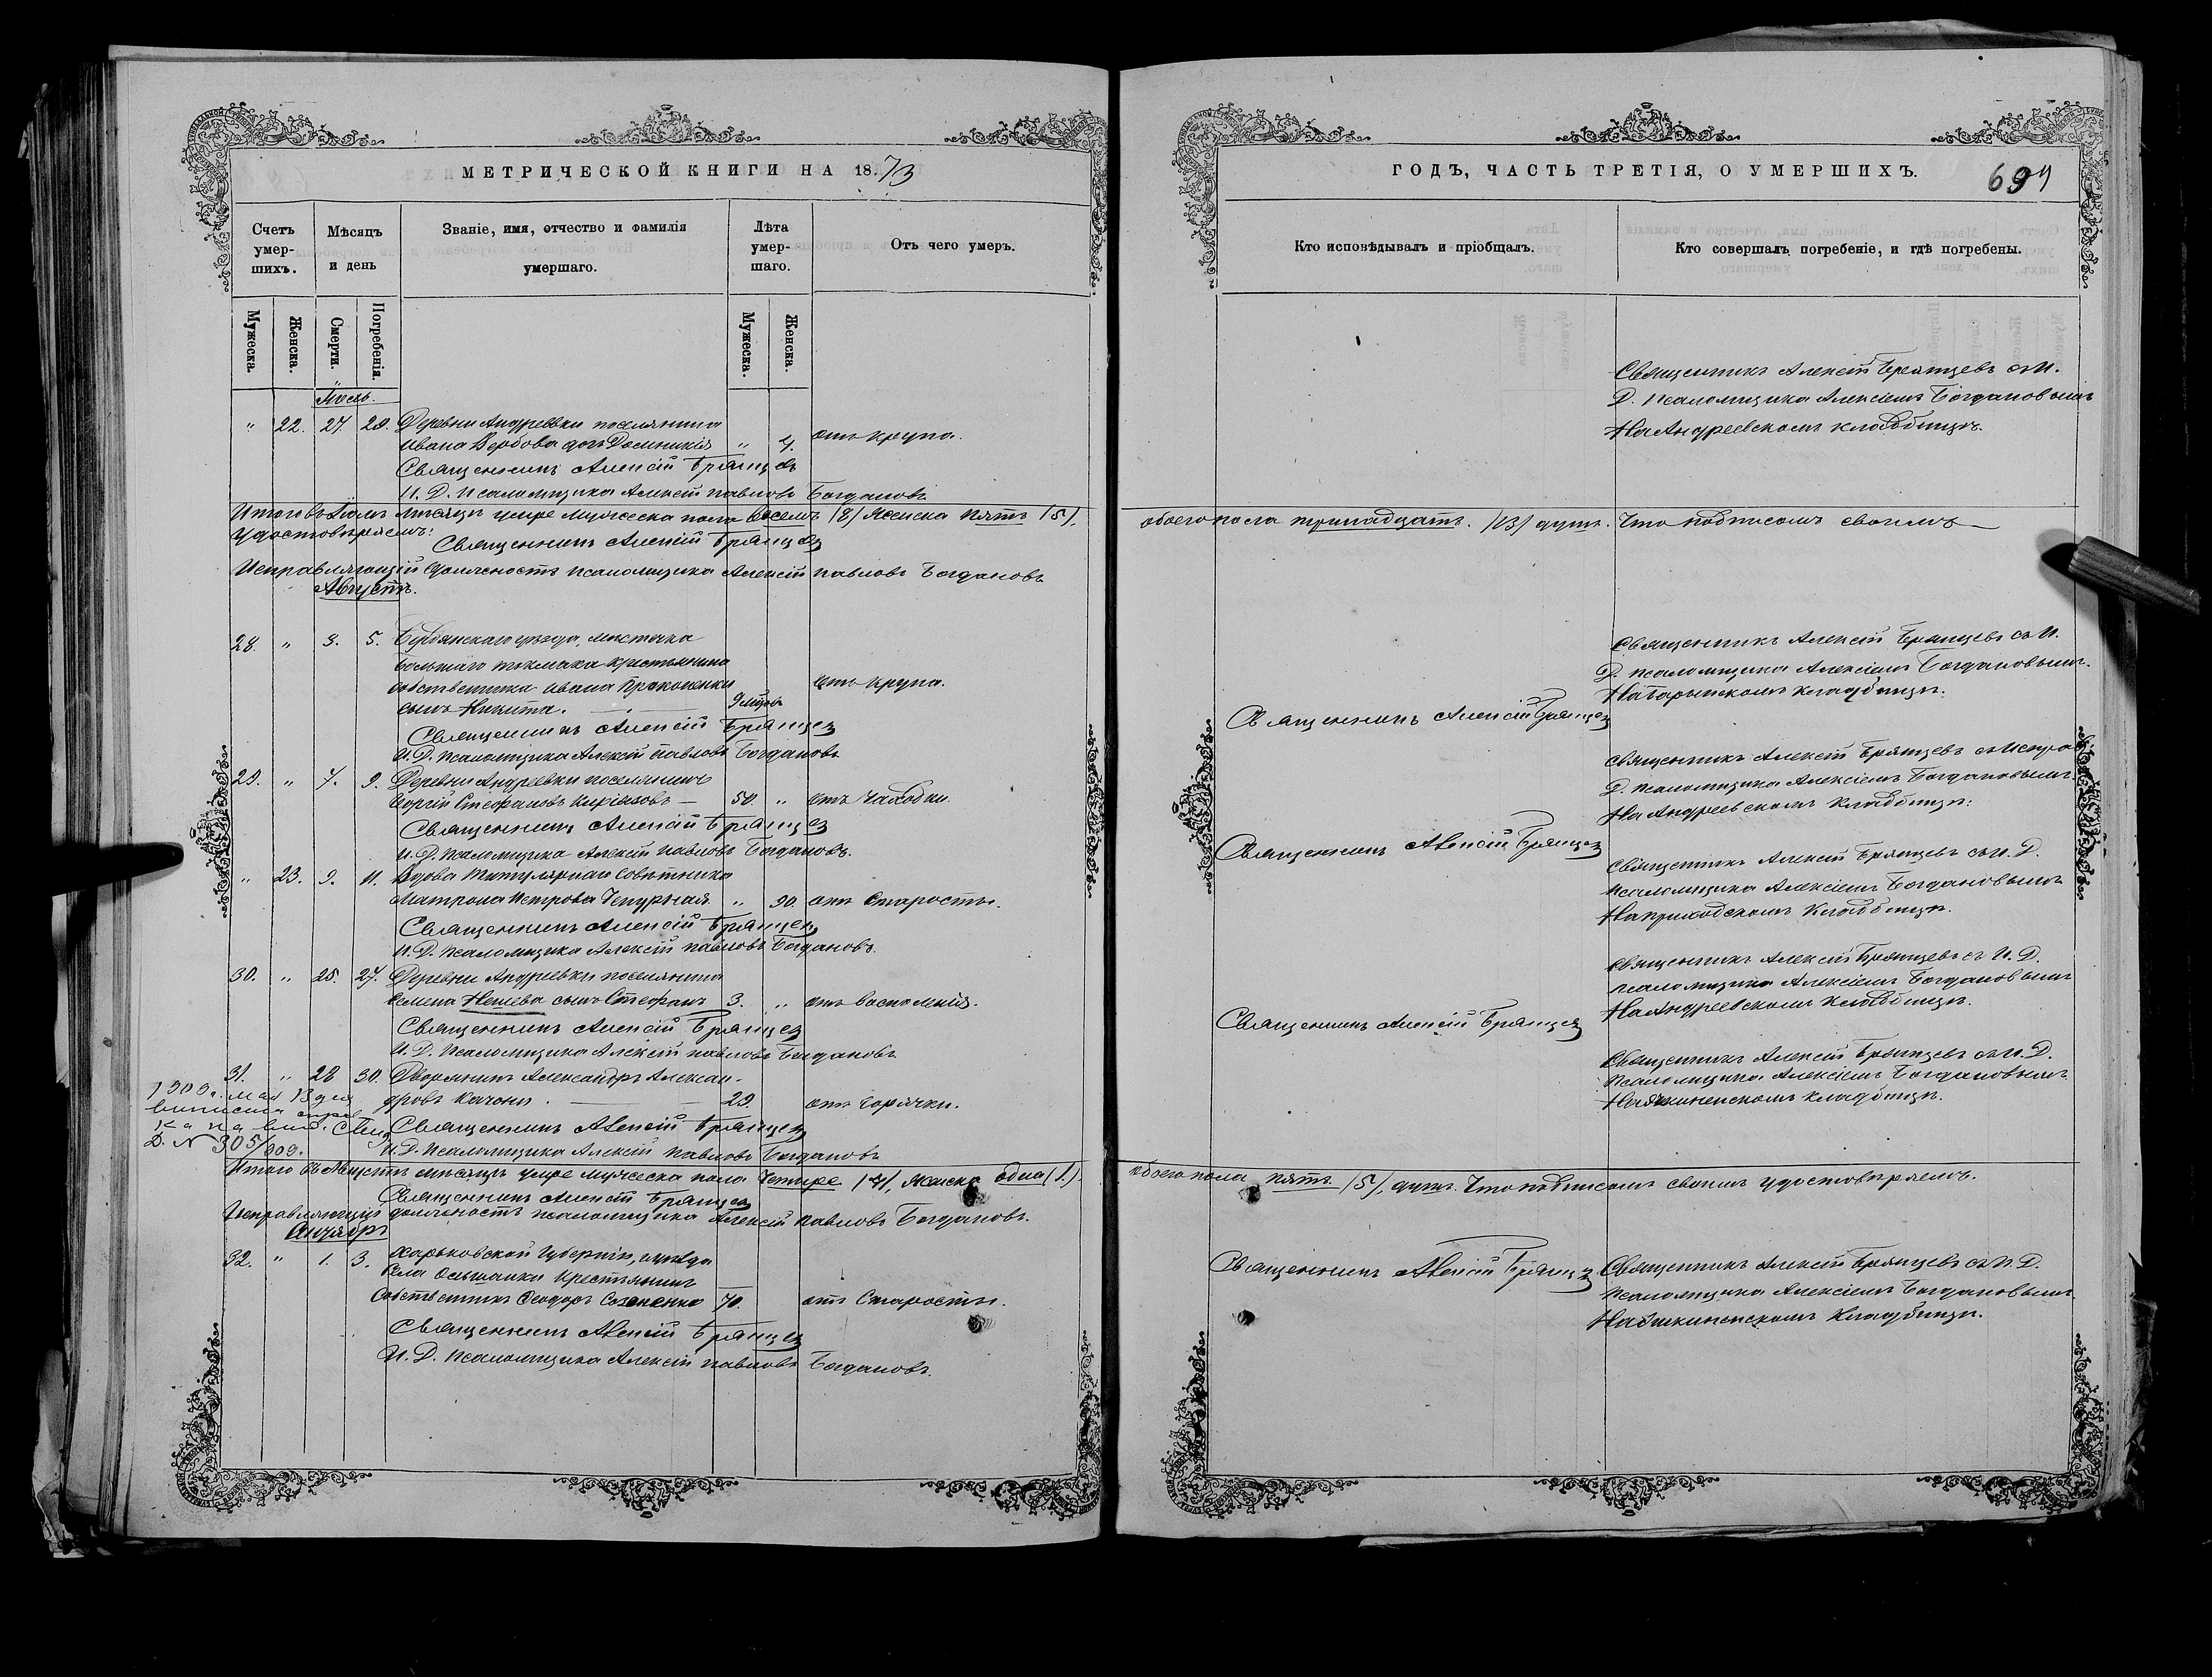 МЕТРИЧЕСКОЙ КНИГИ НА 1873
Счетъ умер-шихъ.
Мѣсяцъ и день
Званіе, имя, отчество и фамилія умершаго.
Лѣта умер-шаго.
Отъ чего умеръ.
Мужеска.
Женска.
Смерти.
Погребенія.
Мужеска.
Женска.
Іюль.
" 22. 27. 29. Деревни Андреевки поселянина
Ивана дочь Домникія " 4. отъ крупа.
Священникъ Алексій Брянцевъ
И. Д. Псаломщика Алексій Павловъ Богдановъ
Итого въ Іюлѣ мѣсяцѣ умре мужеска пола восемь /8/ Женска пять /5/,
Удостовѣряемъ:
Священникъ Алексій Брянцевъ
Исправляющій должность псаломщика Алексій Павловъ Богдановъ
Августъ.
28. " 3. 5. Бердянскаго уѣзда, мѣстечка
Большаго Токмака крестьянина
собственника Ивана Прокопенки отъ крупа.
сынъ Никита. 9 мѣсяц
Священникъ Алексій Брянцевъ
И. Д. Псаломщика Алексій Павловъ Богдановъ
29. " 7. 9. Деревни Андреевки поселянинъ
Георгій Стефановъ Киріязовъ — 50. " отъ Чахотки.
Священникъ Алексій Брянцевъ
И. Д. Псаломщика Алексій Павловъ Богдановъ.
" 23. 9. 11. Вдова Титулярнаго Совѣтника
Матрона Петрова Чепурная " 90. отъ Старости.
Священникъ Алексій Брянцевъ
И. Д. Псаломщика Алексій Павловъ Богдановъ.
30. " 25. 27. Деревни Андреевки поселянина
Семена Нешева сынъ Стефанъ 3. " отъ воспаленія.
Священникъ Алексій Брянцевъ
И. Д. Псаломщика Алексій Павловъ Богдановъ
31. " 28 30. Дворянинъ Александръ Алексан-
дровъ Качони. — 29. отъ Горячки.
1909 г. мая 13 дня
выписана
Д. N 305/909.
Священникъ Алексій Брянцевъ
И. Д. Псаломщика Алексій Павловъ Богдановъ
Итого въ Августѣ мѣсяцѣ умре мужеска пола Четыре /4/, женска одна (1.)
Священникъ Алексій Брянцевъ
Исправляющій должность псаломщика Алексій Павловъ Богдановъ.
32. " 1. 3. Харьковской Губерніи, уѣзда
Села Ольшанки Крестьянинъ
Собственникъ Ѳеодоръ 70. отъ Старости.
Священникъ Алексій Брянцевъ
И. Д. Псаломщика Алексій Павловъ Богдановъ.
ГОДЪ, ЧАСТЬ ТРЕТІЯ, О УМЕРШИХЪ.
Кто исповѣдывалъ и пріобщалъ.
Кто совершалъ погребеніе, и гдѣ погребены.
Священникъ Алексій Брянцевъ съ И.
Д. Псаломщика Алексіемъ Богдановымъ
На Андреевскомъ кладбищѣ.
обоего пола тринадцать /13/ душъ. Что подписомъ своимъ—
Священникъ Алексій Брянцевъ съ И.
Д. псаломщика Алексіемъ Богдановымъ.
кладбищѣ.
Священникъ Алексій Брянцевъ
Священникъ Алексій Брянцевъ съ Исправ.
Д. псаломщика Алексіемъ Богдановымъ.
На Андреевскомъ кладбищѣ.
Священникъ Алексій Брянцевъ
Священникъ Алексій Брянцевъ съ И. Д.
Псаломщика Алексіемъ Богдановымъ
На приходскомъ кладбищѣ.
Священникъ Алексій Брянцевъ съ И. Д.
псаломщика Алексіемъ Богдановымъ
На Андреевскомъ кладбищѣ.
Священникъ Алексій Брянцевъ
Священникъ Алексій Брянцевъ съ И. Д.
Псаломщика Алексіемъ Богдановымъ.
кладбищѣ.
обоего пола пять /5/, душъ. Что подписомъ своимъ удостовѣряемъ.
Священникъ Алексій Брянцевъ
Священникъ Алексій Брянцевъ съ И. Д.
Псаломщика Алексіемъ Богдановымъ.
Кладбищѣ.